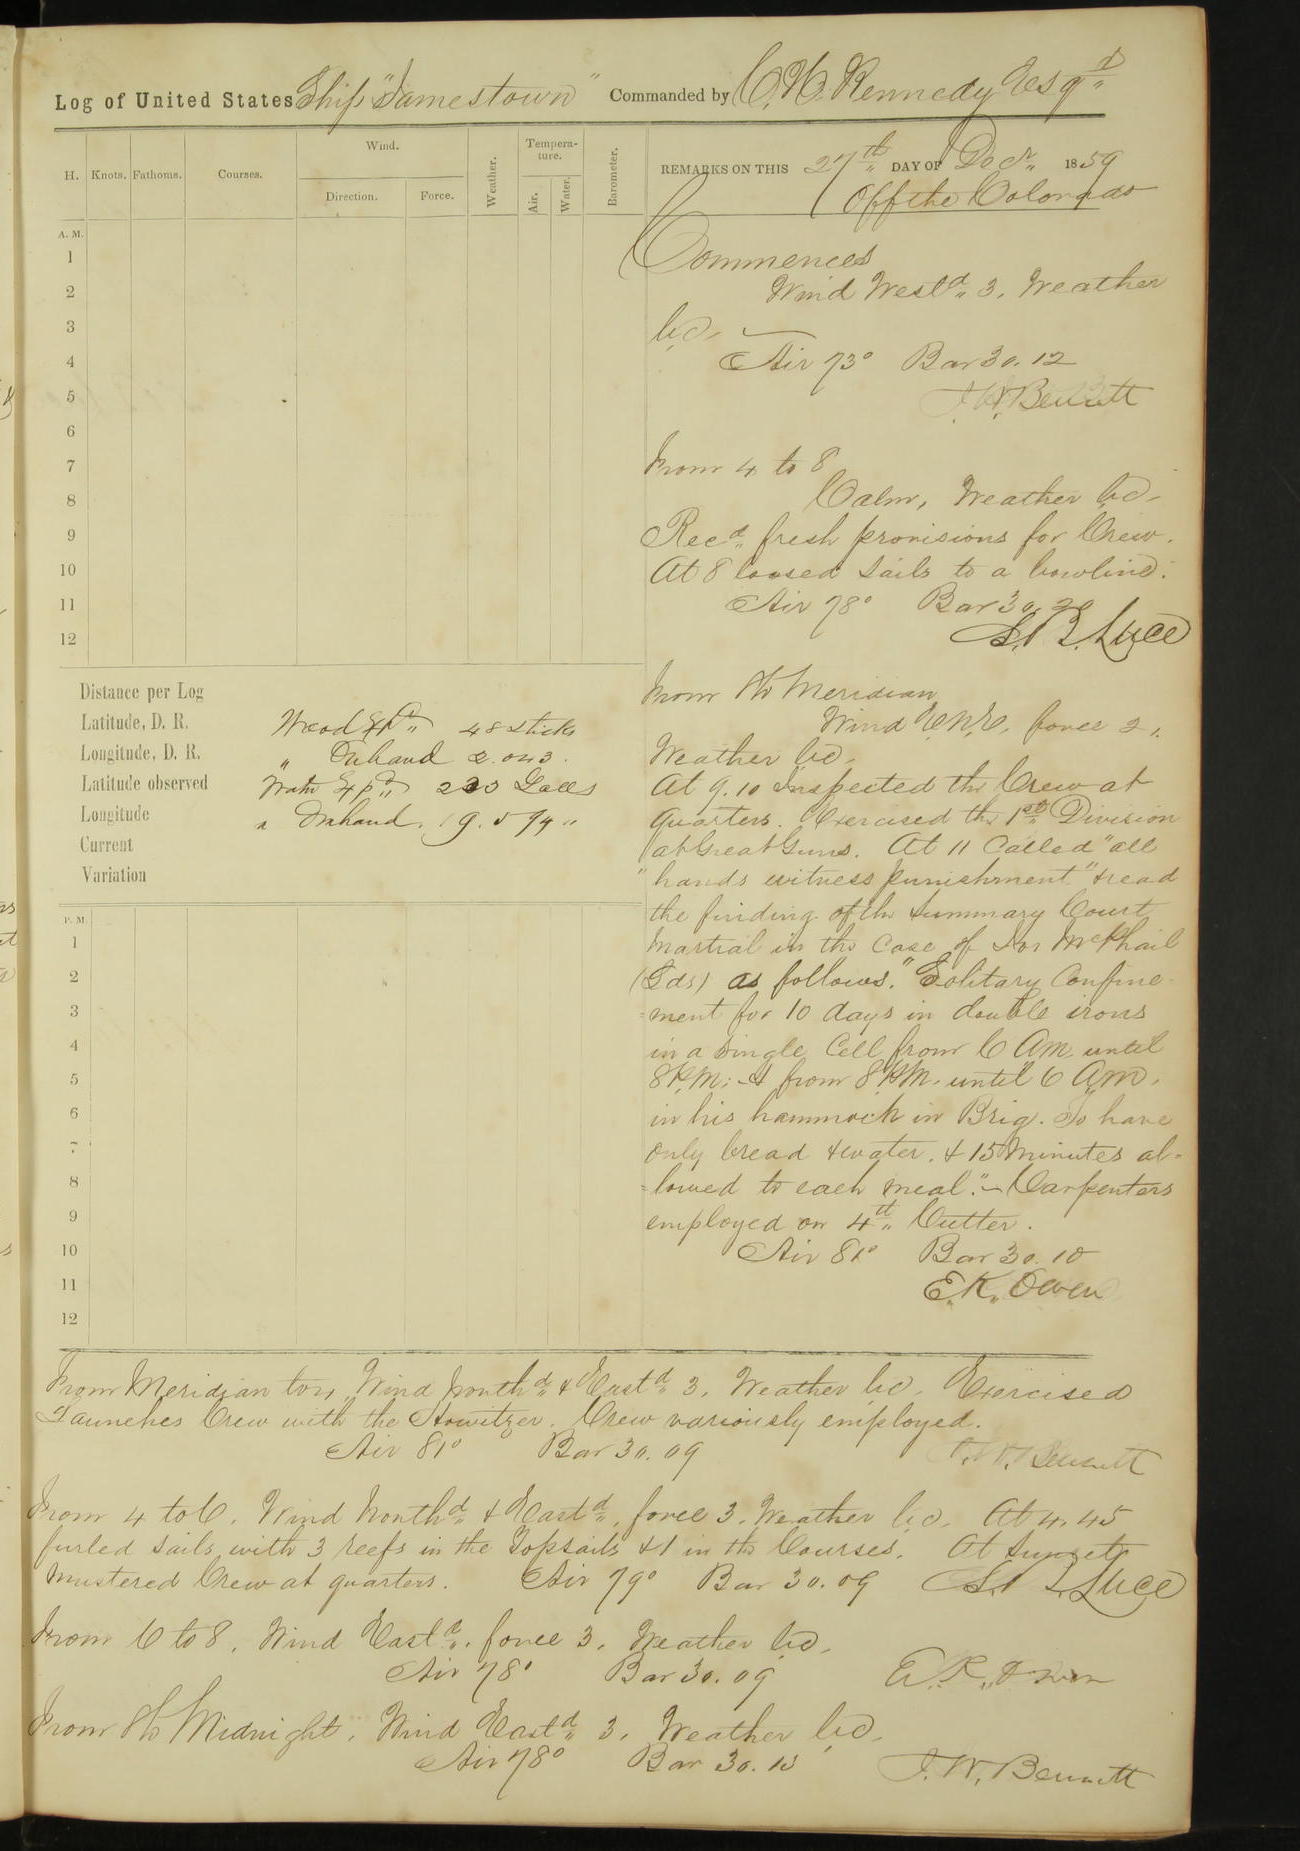 Log of United States Ship "Jamestown" Commanded by C. H. Kennedy Esqr
H. Knots. Fathoms. Courses. Wind. Direction. Force. Weather. Temperature. Air. Water. Barometer.
REMARKS ON THIS 27th DAY OF Decr 1859
Off the Colorado
A. M.
1
2
3
4
5
6
7
8
9
10
11
12
Commences
Wind Westd 3. Weather
b.c.
Air 73° Bar 30.12
J. W. Bennett
From 4 to 8
Calm, Weather b.c.
Recd fresh provisions for Crew.
At 8 loosed sails to a bowline.
Air 78° Bar 30.20
S. B. Luce
Distance per Log
Latitude, D. R.
Longitude, D. R.
Latitude observed
Longitude
Current
Variation
Wood Expd 48 sticks
" Onhand 2.043.
Watr Expd 230 Galls
" Onhand. 19.574 "
From 8 to Meridian
Wind E.N.E. force 2.
Weather b.c.
At 9.10 Inspected the Crew at
quarters. Exercised the 1st Division
at Great Guns. At 11 Called "all
"hands witness punishment" & read
the finding of the Summary Court
Martial in the Case of McPhail
(Lds) as follows. "Solitary Confine-
=ment for 10 days in double irons
in a single Cell from 6 AM. until
8 P.M: & from 8 P.M. until 6 A.M.
in his hammock in Brig. To have
only bread & water. & 15 Minutes al-
=lowed to each meal." — Carpenters
employed on 4th Cutter.
Air 81° Bar 30.10
E. K. Owen
P. M.
1
2
3
4
5
6
7
8
9
10
11
12
From Meridian to 4, Wind Northd & Eastd 3. Weather b.c. Exercised
Launches Crew with the Howitzer. Crew variously employed.
Air 81° Bar 30.09 J. W. Bennett
From 4 to 6. Wind Northd & Eastd. force 3. Weather b.c. At 4.45
furled sails with 3 reefs in the Topsails & 1 in the Courses. At Sunset
mustered Crew at quarters. Air 79° Bar 30.09 S. B. Luce
From 6 to 8. Wind Eastd. force 3. Weather b.c.
Air 78° Bar 30.09 E. K. Owen
From 8 to Midnight. Wind Eastd 3. Weather b.c.
Air 78° Bar 30.13 J. W. Bennett